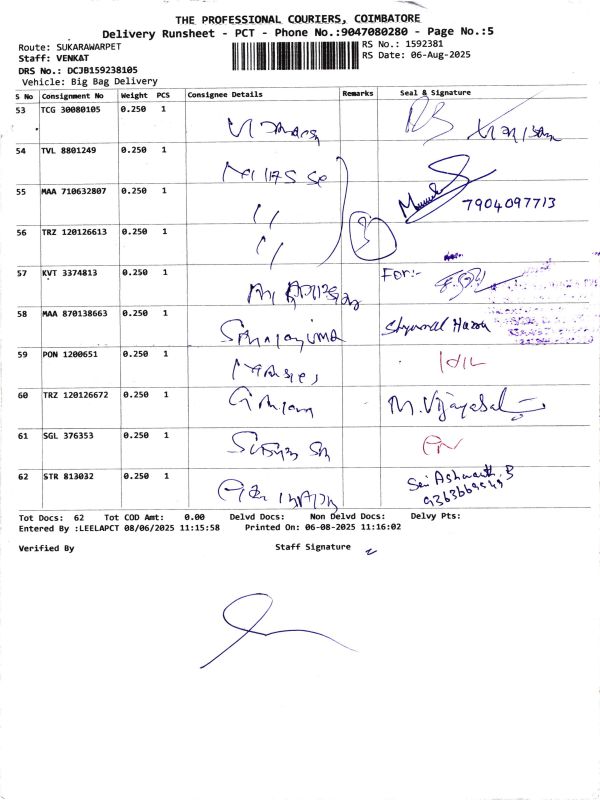 THE PROFESSIONAL COURIERS, COIMBATORE
Delivery Runsheet - PCT - Phone No.:9047080280 - Page No.:5
Route: SUKARAWARPET
RS No.: 1592381
Staff: VENKAT
RS Date: 06-Aug-2025
DRS No.: DCJB159238105
Vehicle: Big Bag Delivery
S No Consignment No Weight PCS Consignee Details Remarks Seal & Signature
53 TCG 30080105 0.250 1
54 TVL 8801249 0.250 1
55 MAA 710632807 0.250 1 7904097713
56 TRZ 120126613 0.250 1 3
57 KVT 3374813 0.250 1 For:-
58 MAA 870138663 0.250 1
59 PON 1200651 0.250 1
60 TRZ 120126672 0.250 1
61 SGL 376353 0.250 1
62 STR 813032 0.250 1 Sri Ashwanth. B
Tot Docs: 62 Tot COD Amt: 0.00 Delvd Docs: Non Delvd Docs: Delvy Pts:
Entered By :LEELAPCT 08/06/2025 11:15:58 Printed On: 06-08-2025 11:16:02
Verified By Staff Signature